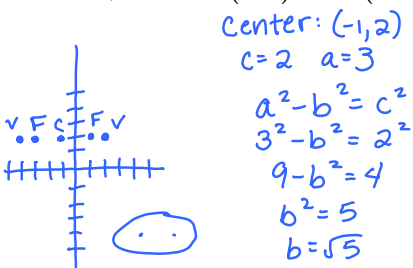 Center: (-1,2)
c=2 a=3
a²-b²=c²
3²-b²=2²
9-b²=4
b²=5
b=√5
V F C F V